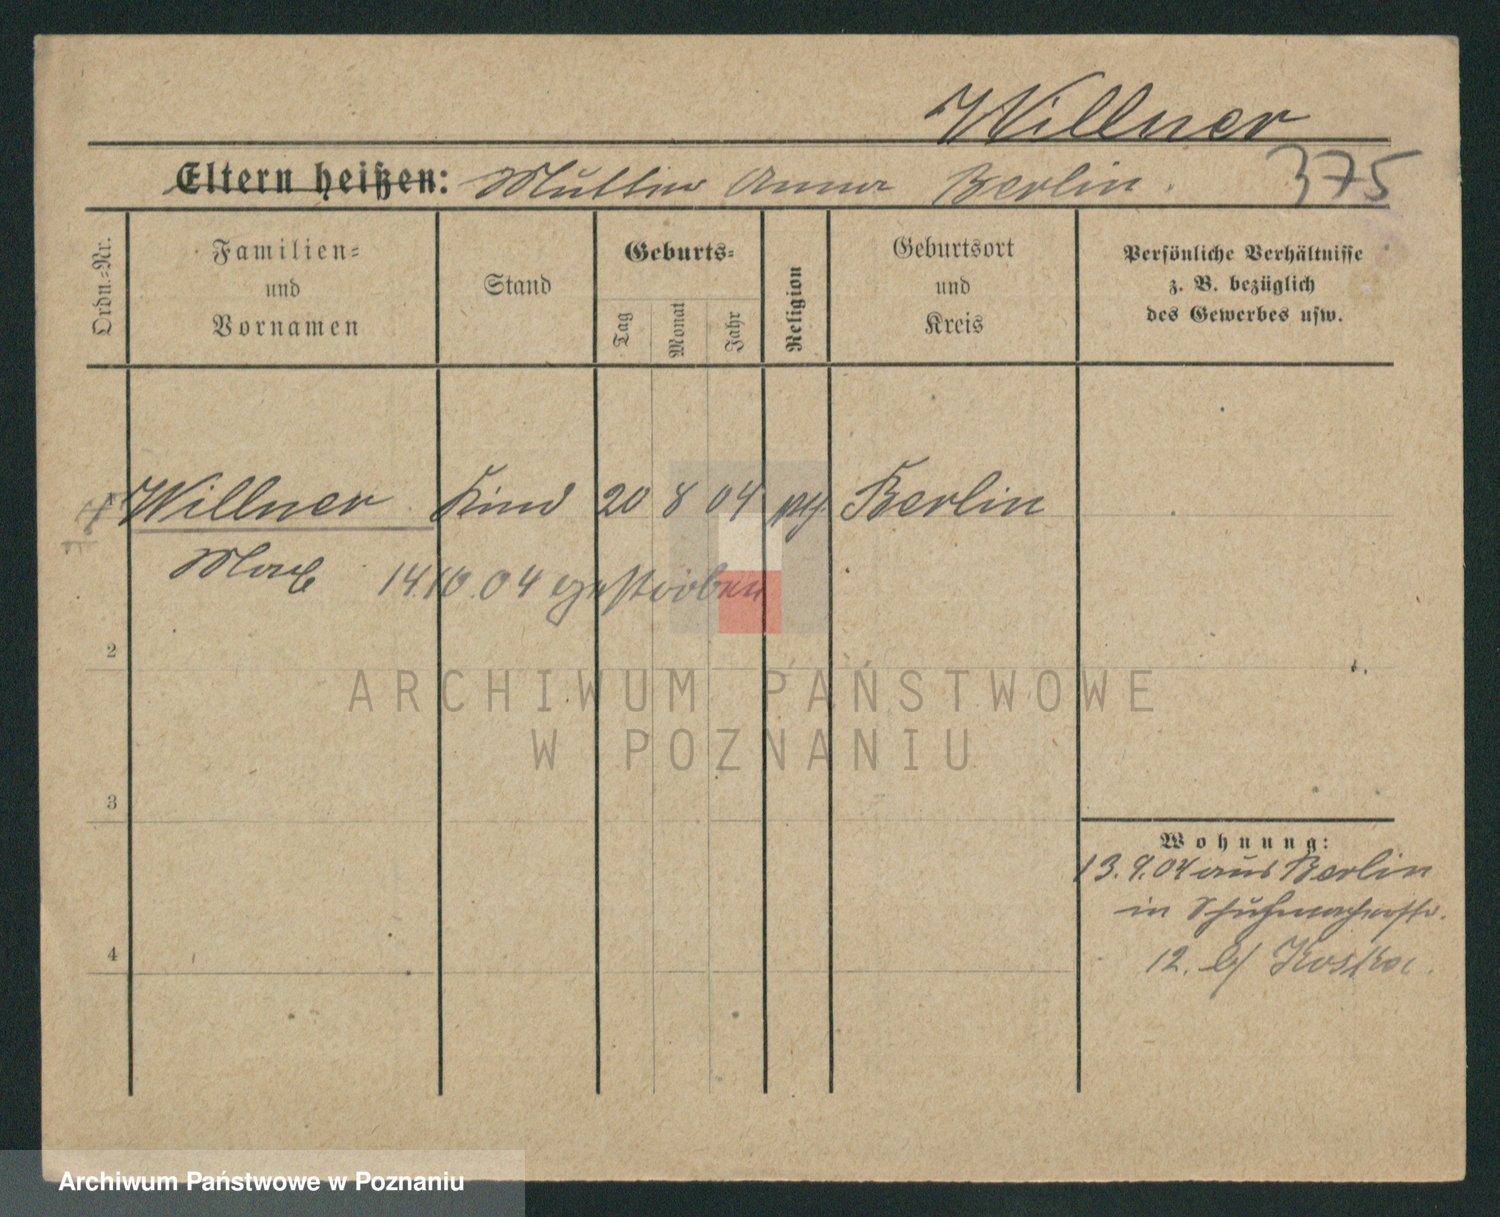 Willner
Eltern heißen: Mutter Anna Berlin. 375
Ordn.-Nr.
Familien-
und
Vornamen
Stand
Geburts-
Tag
Monat
Jahr
Religion
Geburtsort
und
Kreis
Persönliche Verhältnisse
z. B. bezüglich
des Gewerbes usw.
1 Willner Kind 20 8 04 Berlin
Max 14.10.04 gestorben
2
ARCHIWUM PAŃSTWOWE
W POZNANIU
3
Wohnung:
13.9.04 aus Berlin
in Schuhmacherstr.
12. b/ Koska.
4
Archiwum Państwowe w Poznaniu